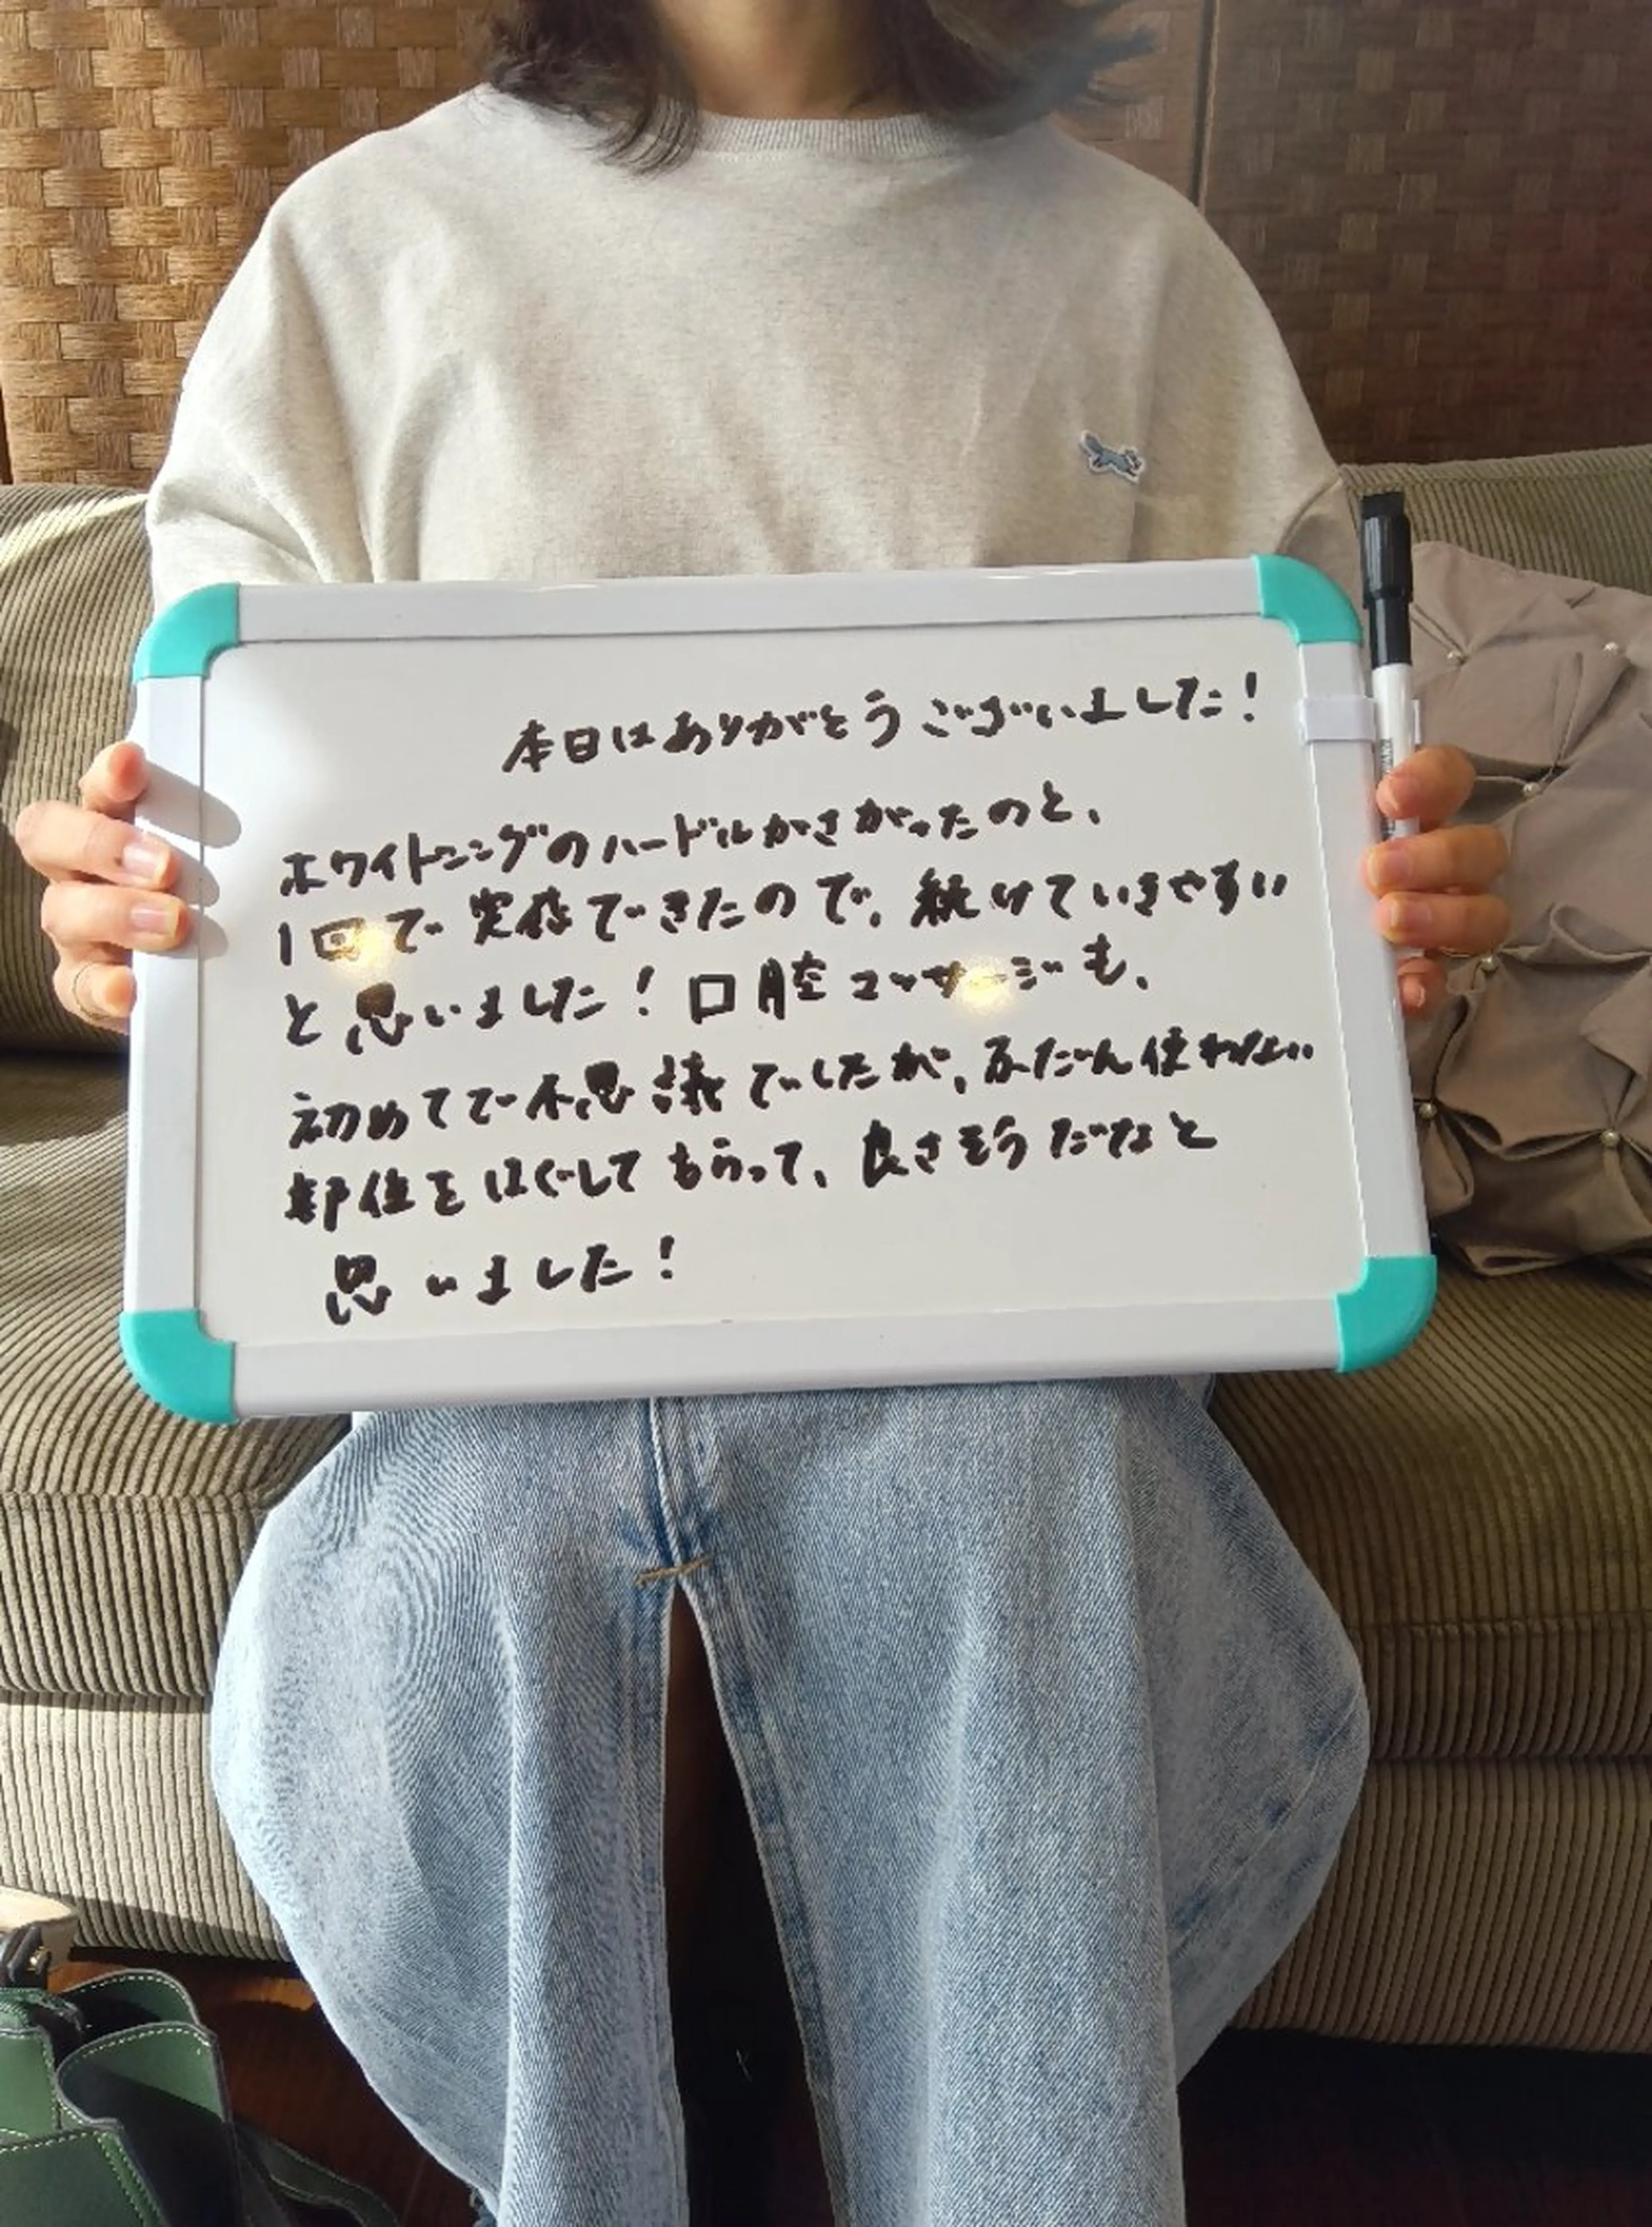 本日はありがとうございました!
ホワイトニングのハードルがさがったのと、
1回で実感できたので、続けていきやすい
と思いました!口腔マッサージも、
初めてで不思議でしたが、ふだん使わない
部位をほぐしてもらって、良さそうだなと
思いました!